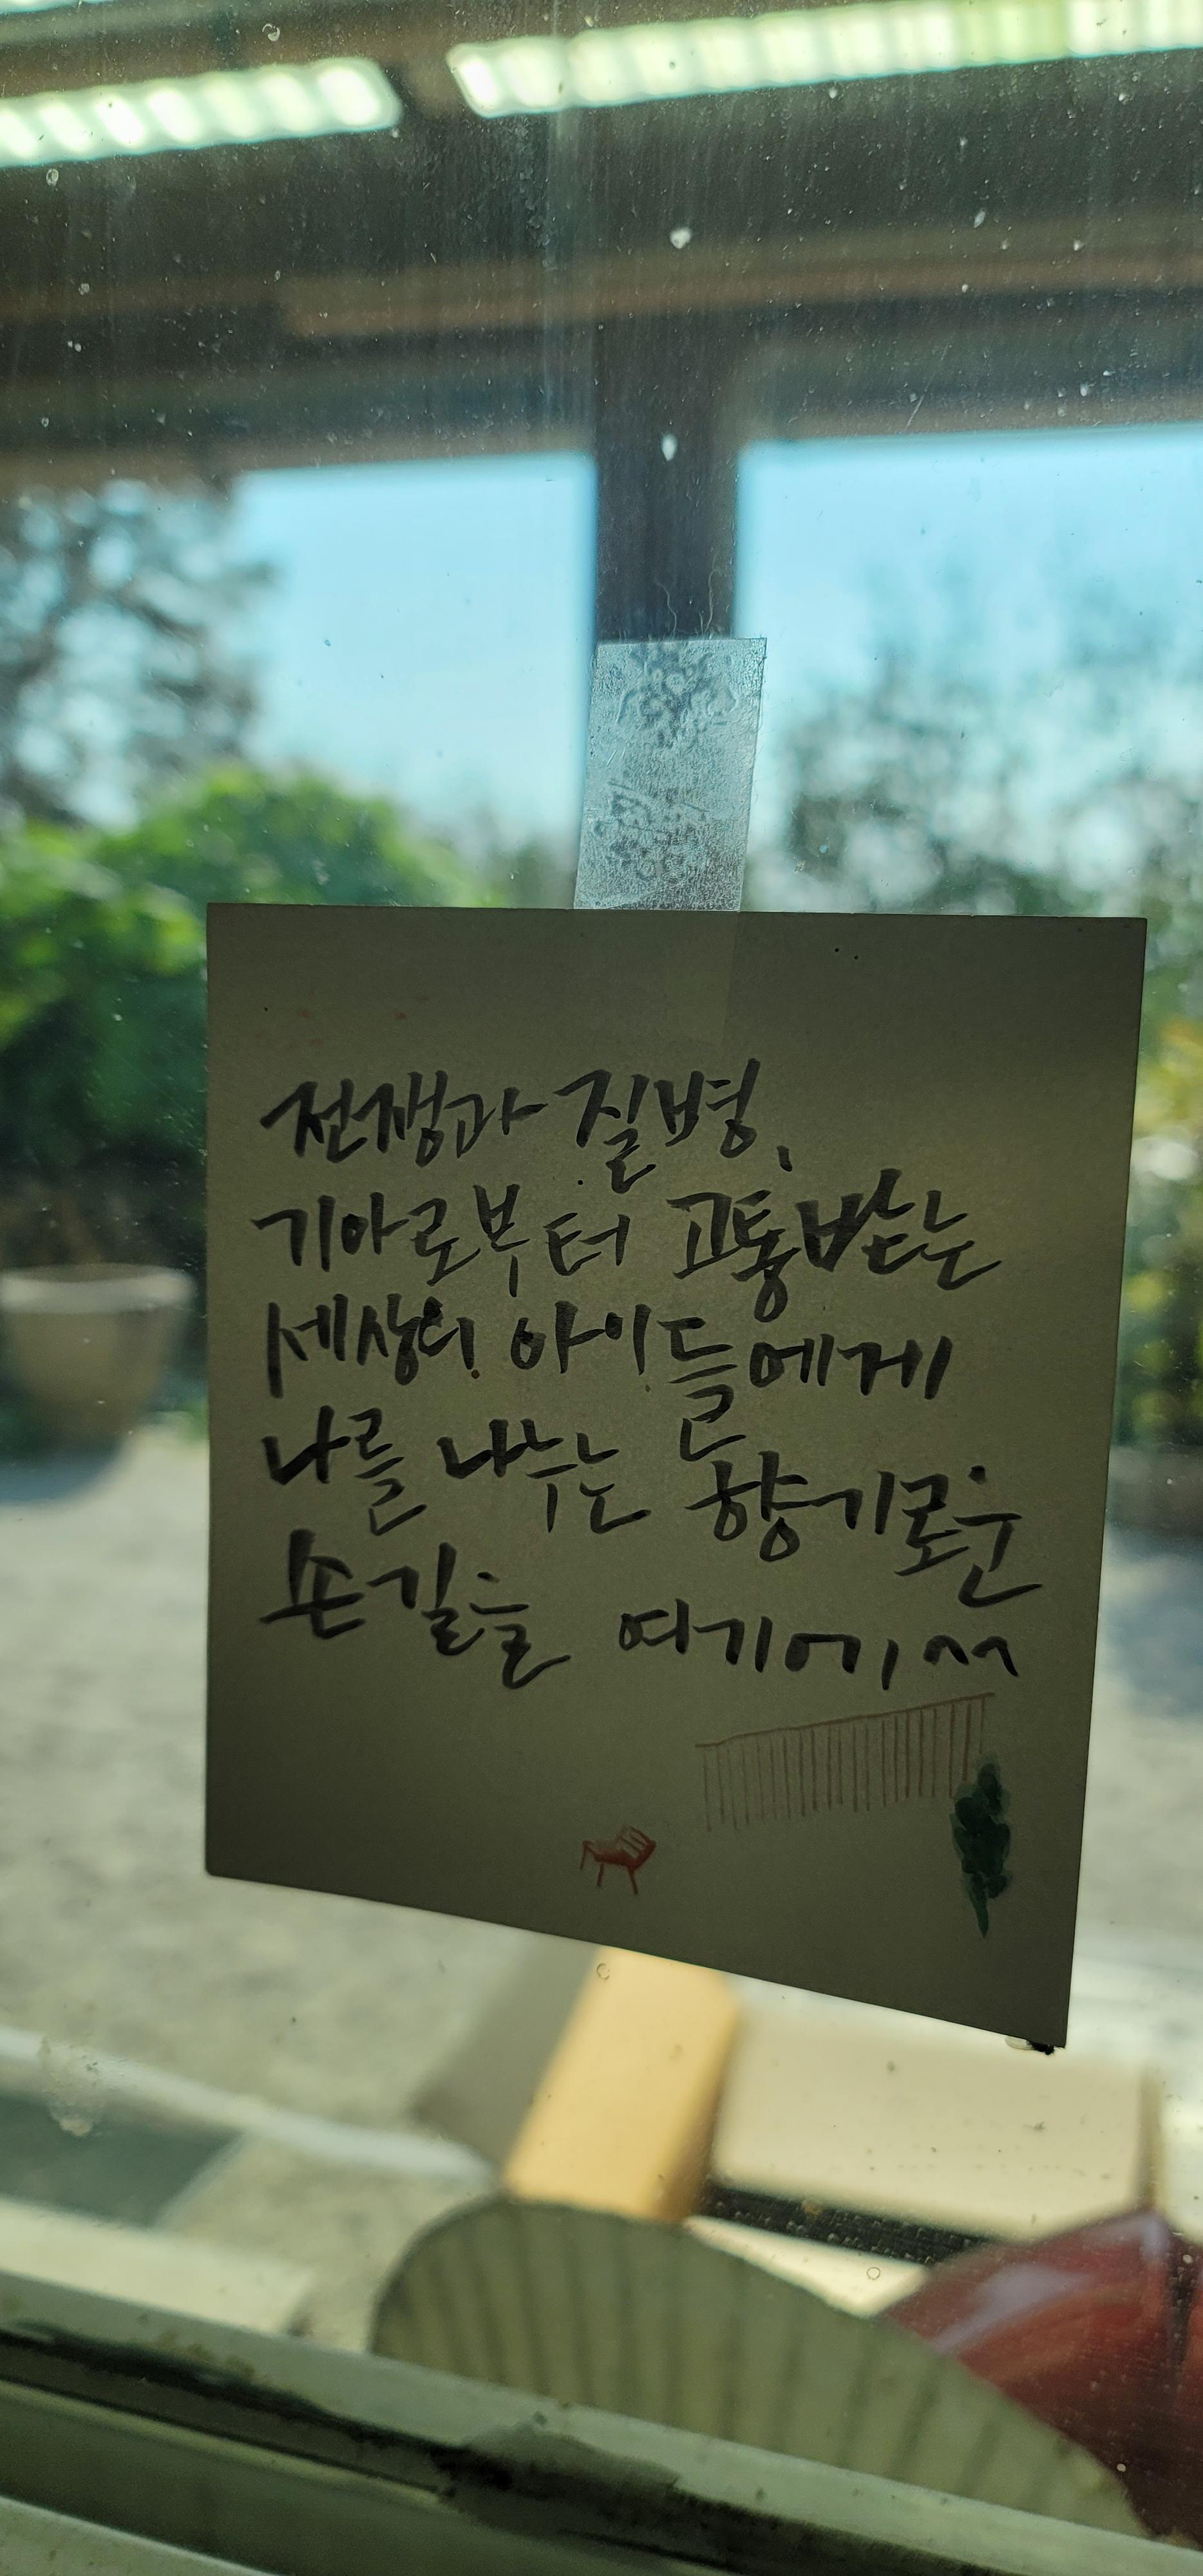 전쟁과 질병,
기아로부터 고통받는
세상의 아이들에게
나를 나누는 향기로운
손길을 여기에서